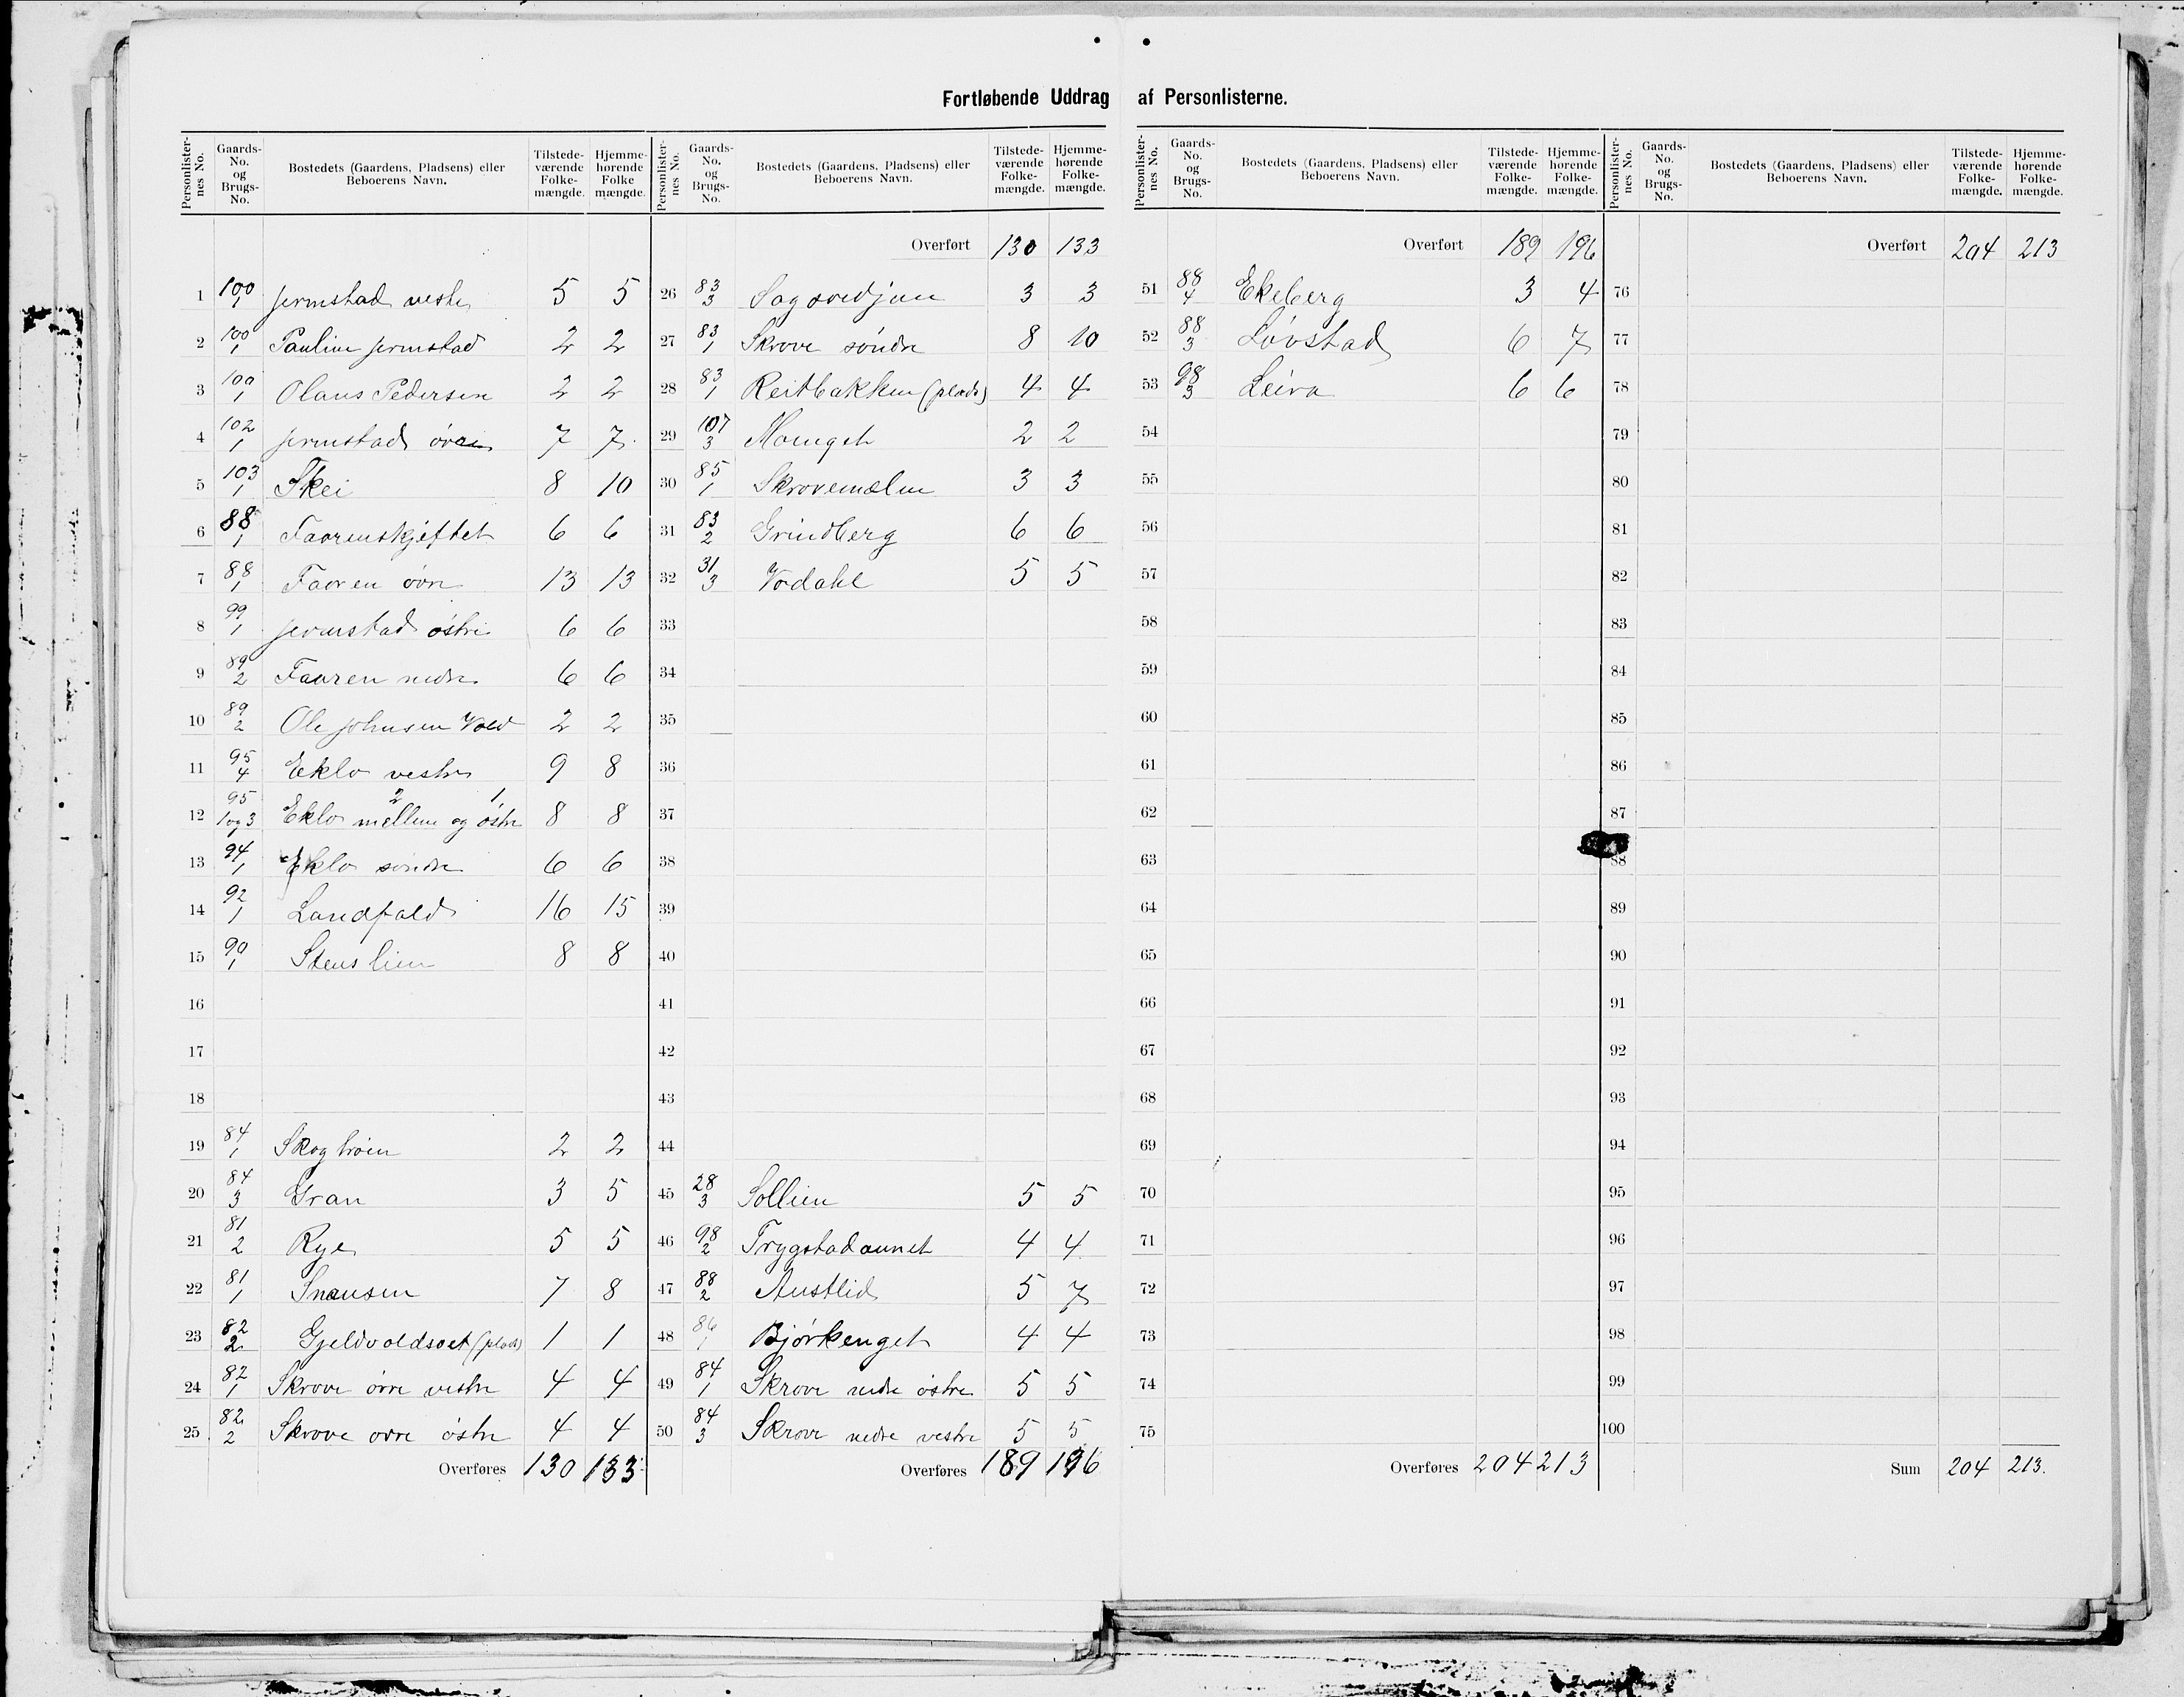 Fortløbende Uddrag af Personlisterne.
Personlister-nes No. Gaards-No. og Brugs-No. Bostedets (Gaardens, Pladsens) eller Beboerens Navn. Tilstede-værende Folke-mængde. Hjemme-hørende Folke mængde.
1 100/1 Jermstad vestre 5 5
2 100/1 Pauline Jermstad 2 2
3 100/1 Olaus Pedersen 2 2
4 102/1 Jermstad øvre 7 7
5 103/1 Skei 8 10
6 88/1 Faarenskjiftet 6 6
7 88/1 Faaren øvre 13 13
8 99/1 Jermstad østre 6 6
9 89/2 Faaren nedre 6 6
10 89/2 Ole Johnsen Vold 2 2
11 95/4 Eklo vestre 9 8
12 95/1 og 3 Eklo mellem 2 og østre 1 8 8
13 94/1 Eklo søndre 6 6
14 92/1 Landfald 16 15
15 90/1 Stenslien 8 8
16
17
18
19 84/1 Skogtrøen 2 2
20 84/3 Gran 3 5
21 81/2 Rye 5 5
22 81/1 Snausen 7 8
23 82/2 Gjeldvoldsaet (plads) 1 1
24 82/1 Skrove øvre vestre 4 4
25 82/2 Skrove øvre østre 4 4
Overføres 130 133
Personlister-nes No. Gaards-No. og Brugs-No. Bostedets (Gaardens, Pladsens) eller Beboerens Navn. Tilstede-værende Folke-mængde. Hjemme-hørende Folke-mængde.
Overført 130 133
26 83/3 Sagsvedjan 3 3
27 83/1 Skrove søndre 8 10
28 83/1 Reitbakken (plads) 4 4
29 107/3 Moenget 2 2
30 85/1 Skrovemælen 3 3
31 83/2 Grindberg 6 6
32 31/3 Vordahl 5 5
33
34
35
36
37
38
39
40
41
42
43
44
45 28/3 Sollien 5 5
46 98/2 Trygstadaunet 4 4
47 88/2 Austlid 5 7
48 86/1 Bjørkenget 4 4
49 84/1 Skrove nedre østre 5 5
50 84/3 Skrove nedre vestre 5 5
Overføres 189 196
Personlister-nes No. Gaards-No. og Brugs-No. Bostedets (Gaardens, Pladsens) eller Beboerens Navn. Tilstede-værende Folke-mængde. Hjemme-hørende Folke-mængde.
Overført 189 196
51 88/4 Ekeberg 3 4
52 88/3 Løvstad 6 7
53 98/3 Leira 6 6
54
55
56
57
58
59
60
61
62
63
64
65
66
67
68
69
70
71
72
73
74
75
Overføres 204 213
Personlister-nes No. Gaards-No. og Brugs-No. Bostedets (Gaardens, Pladsens) eller Beboerens Navn. Tilstede-værende Folke-mængde. Hjemme-hørende Folke-mængde.
Overført 204 213
76
77
78
79
80
81
82
83
84
85
86
87
88
89
90
91
92
93
94
95
96
97
98
99
100
Sum 204 213.